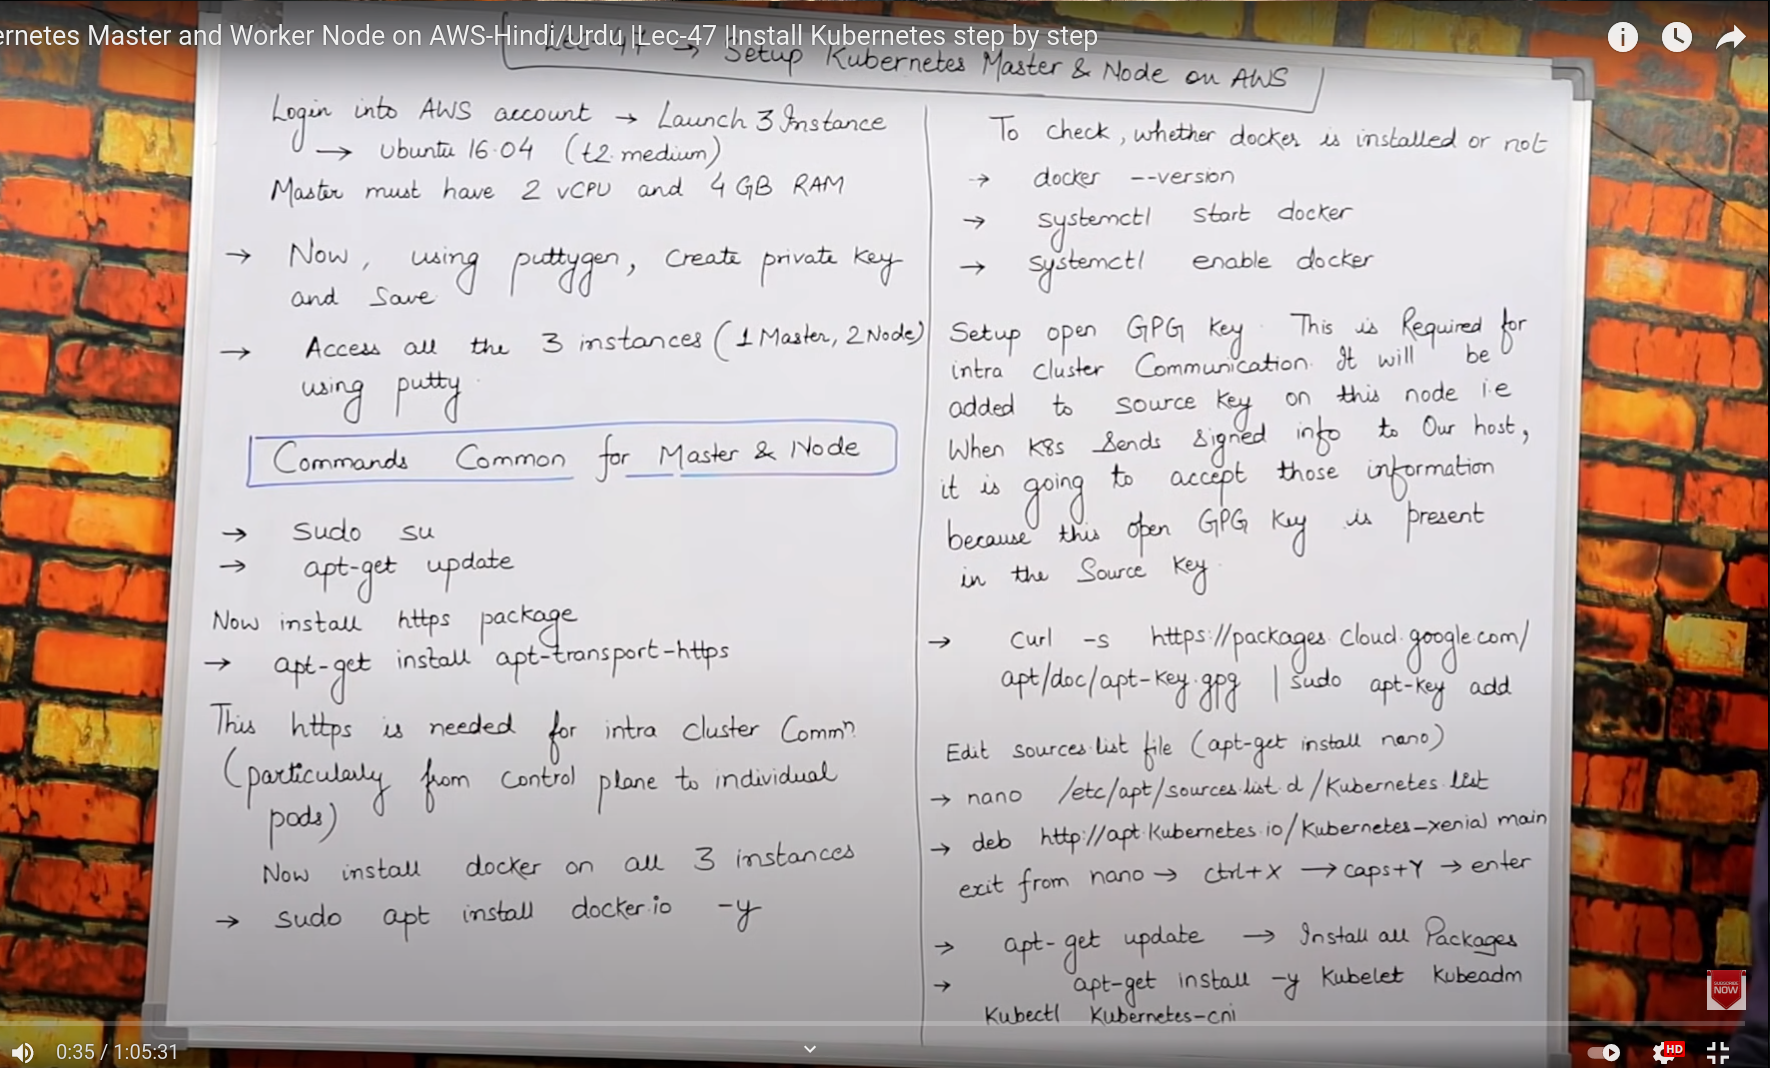 ernetes Master and Worker Node on AWS-Hindi/Urdu |Lec-47 |Install Kubernetes step by step
Lec-47 → Setup Kubernetes Master & Node on AWS
Login into AWS account → Launch 3 Instance
→ Ubuntu 16.04 (t2.medium)
Master must have 2 vCPU and 4 GB RAM
→ Now, using puttygen, create private key
and save
→ Access all the 3 instances (1 Master, 2 Node)
using putty.
Commands Common for Master & Node
→ sudo su
→ apt-get update
Now install https package
→ apt-get install apt-transport-https
This https is needed for intra cluster Commⁿ
(particularly from control plane to individual
pods)
Now install docker on all 3 instances
→ sudo apt install docker.io -y
To check, whether docker is installed or not
→ docker --version
→ systemctl start docker
→ systemctl enable docker
Setup open GPG key. This is Required for
intra cluster Communication. It will be
added to source key on this node i.e
When K8s sends signed info to Our host,
it is going to accept those information
because this open GPG key is present
in the Source key.
→ curl -s https://packages.cloud.google.com/
apt/doc/apt-key.gpg | sudo apt-key add
Edit sources.list file (apt-get install nano)
→ nano /etc/apt/sources.list.d/kubernetes.list
→ deb http://apt.kubernetes.io/ kubernetes-xenial main
exit from nano → ctrl+X → caps+Y → enter
→ apt-get update → Install all Packages
→ apt-get install -y kubelet kubeadm
kubectl kubernetes-cni
SUBSCRIBE
NOW
0:35 / 1:05:31
HD